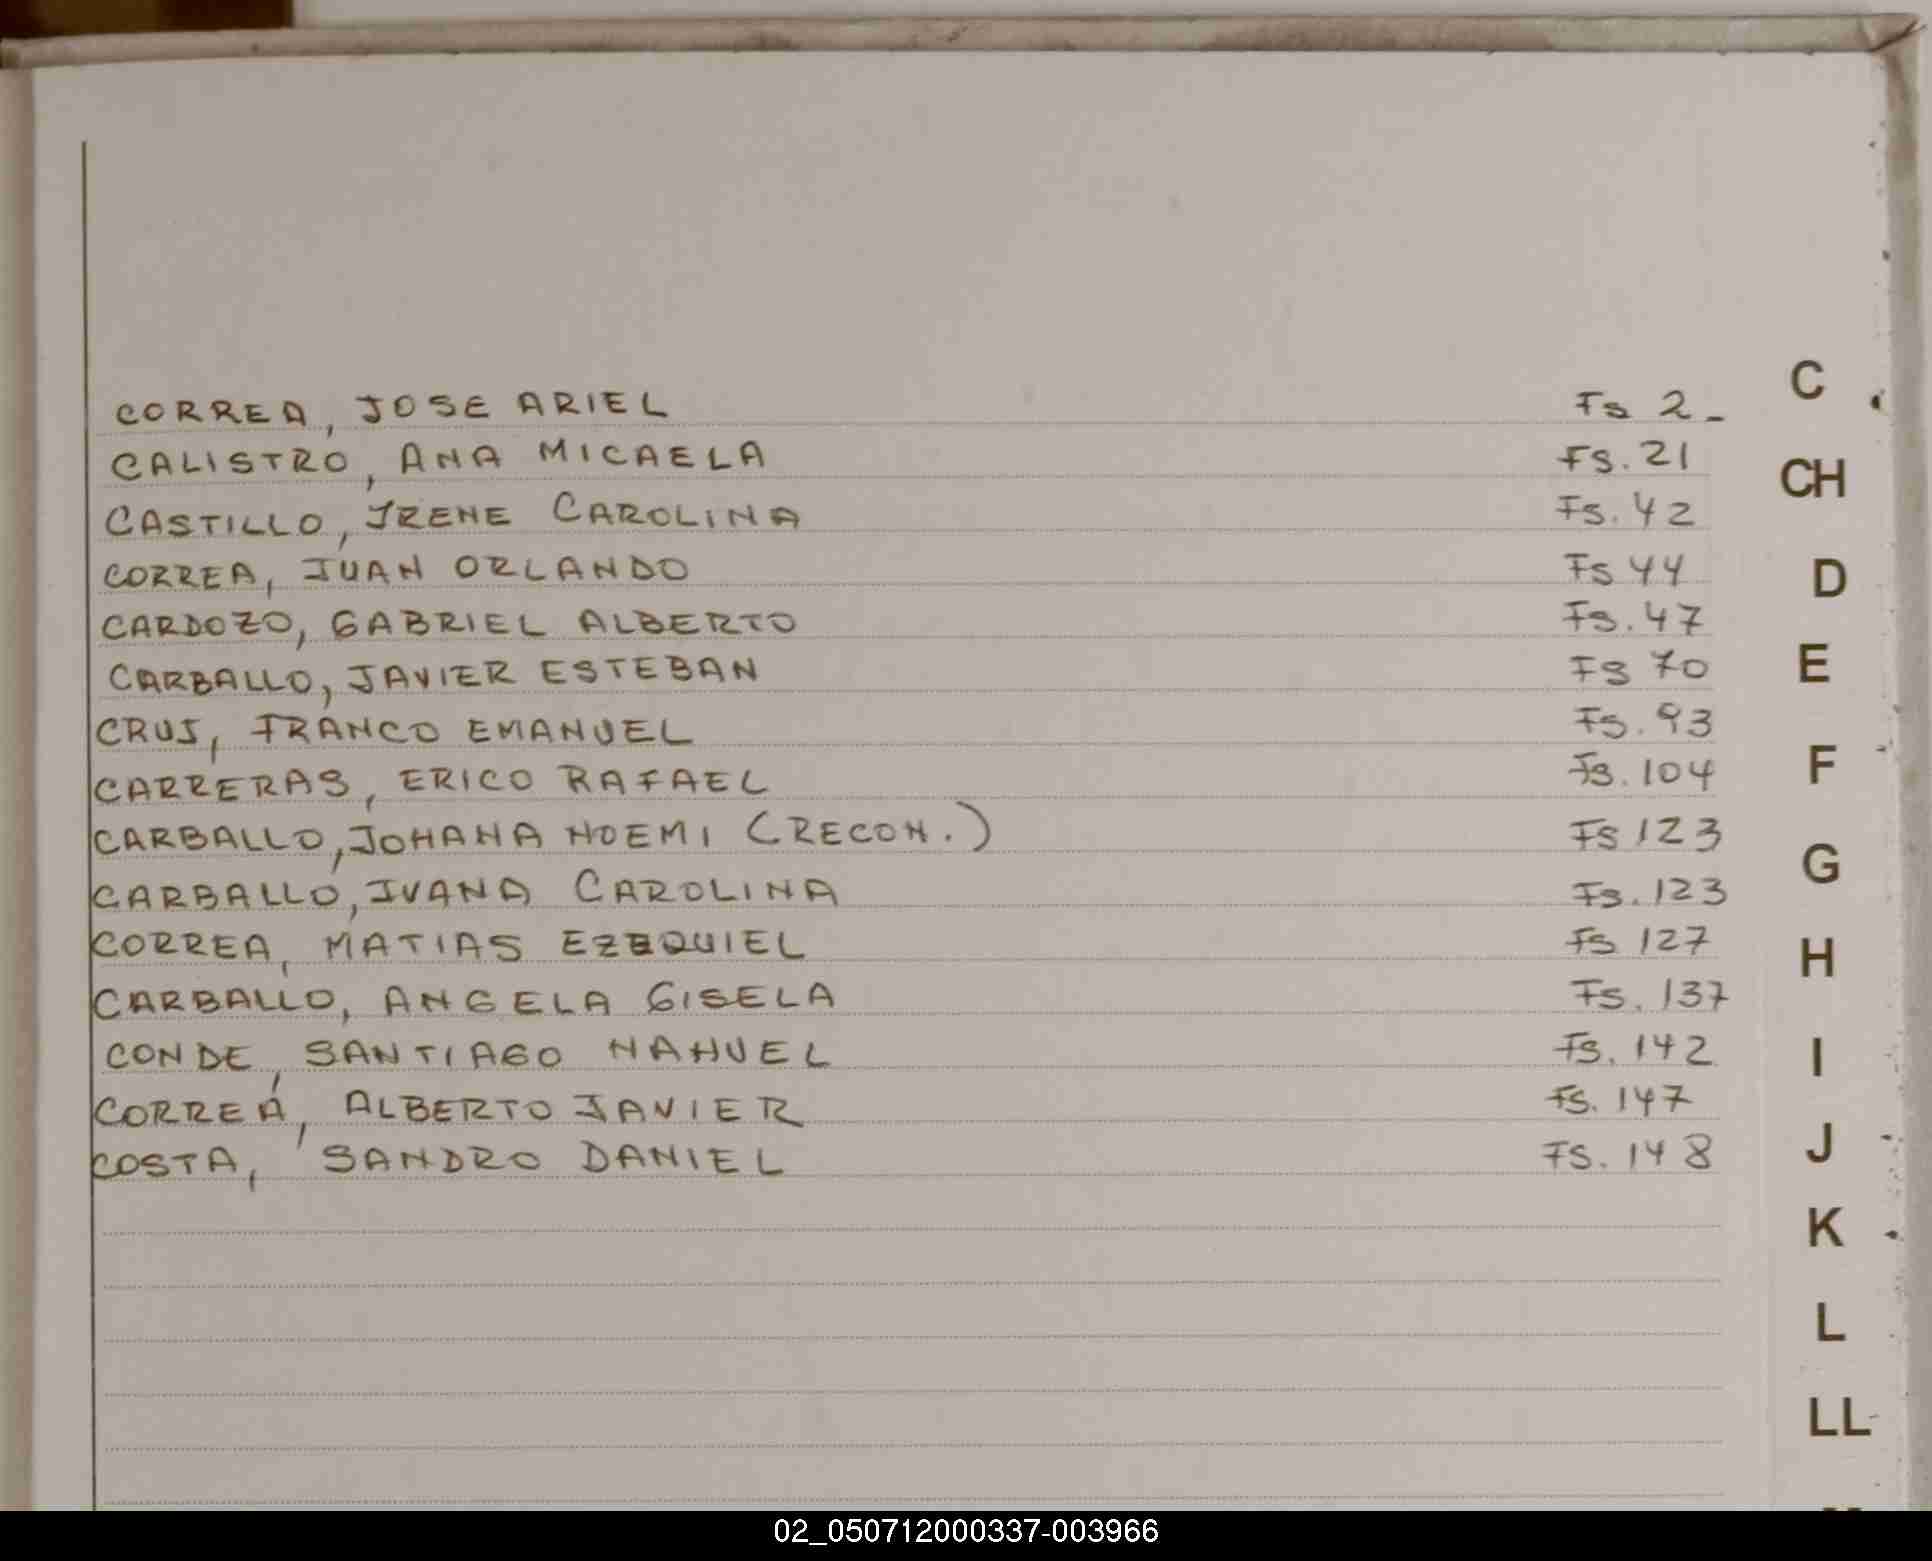 CORREA, JOSE ARIEL Fs 2_
CALISTRO, ANA MICAELA Fs. 21
CASTILLO, IRENE CAROLINA Fs. 42
CORREA, JUAN ORLANDO Fs 44
CARDOZO, GABRIEL ALBERTO Fs. 47
CARBALLO, JAVIER ESTEBAN Fs 70
CRUS, FRANCO EMANUEL Fs. 93
CARRERAS, ERICO RAFAEL Fs. 104
CARBALLO, JOHANA NOEMI (RECON.) Fs 123
CARBALLO, IVANA CAROLINA Fs. 123
CORREA, MATIAS EZEQUIEL Fs 127
CARBALLO, ANGELA GISELA Fs. 137
CONDE, SANTIAGO NAHUEL Fs. 142
CORREA, ALBERTO JAVIER Fs. 147
COSTA, SANDRO DANIEL Fs. 148
C
CH
D
E
F
G
H
I
J
K
L
LL
02_050712000337-003966